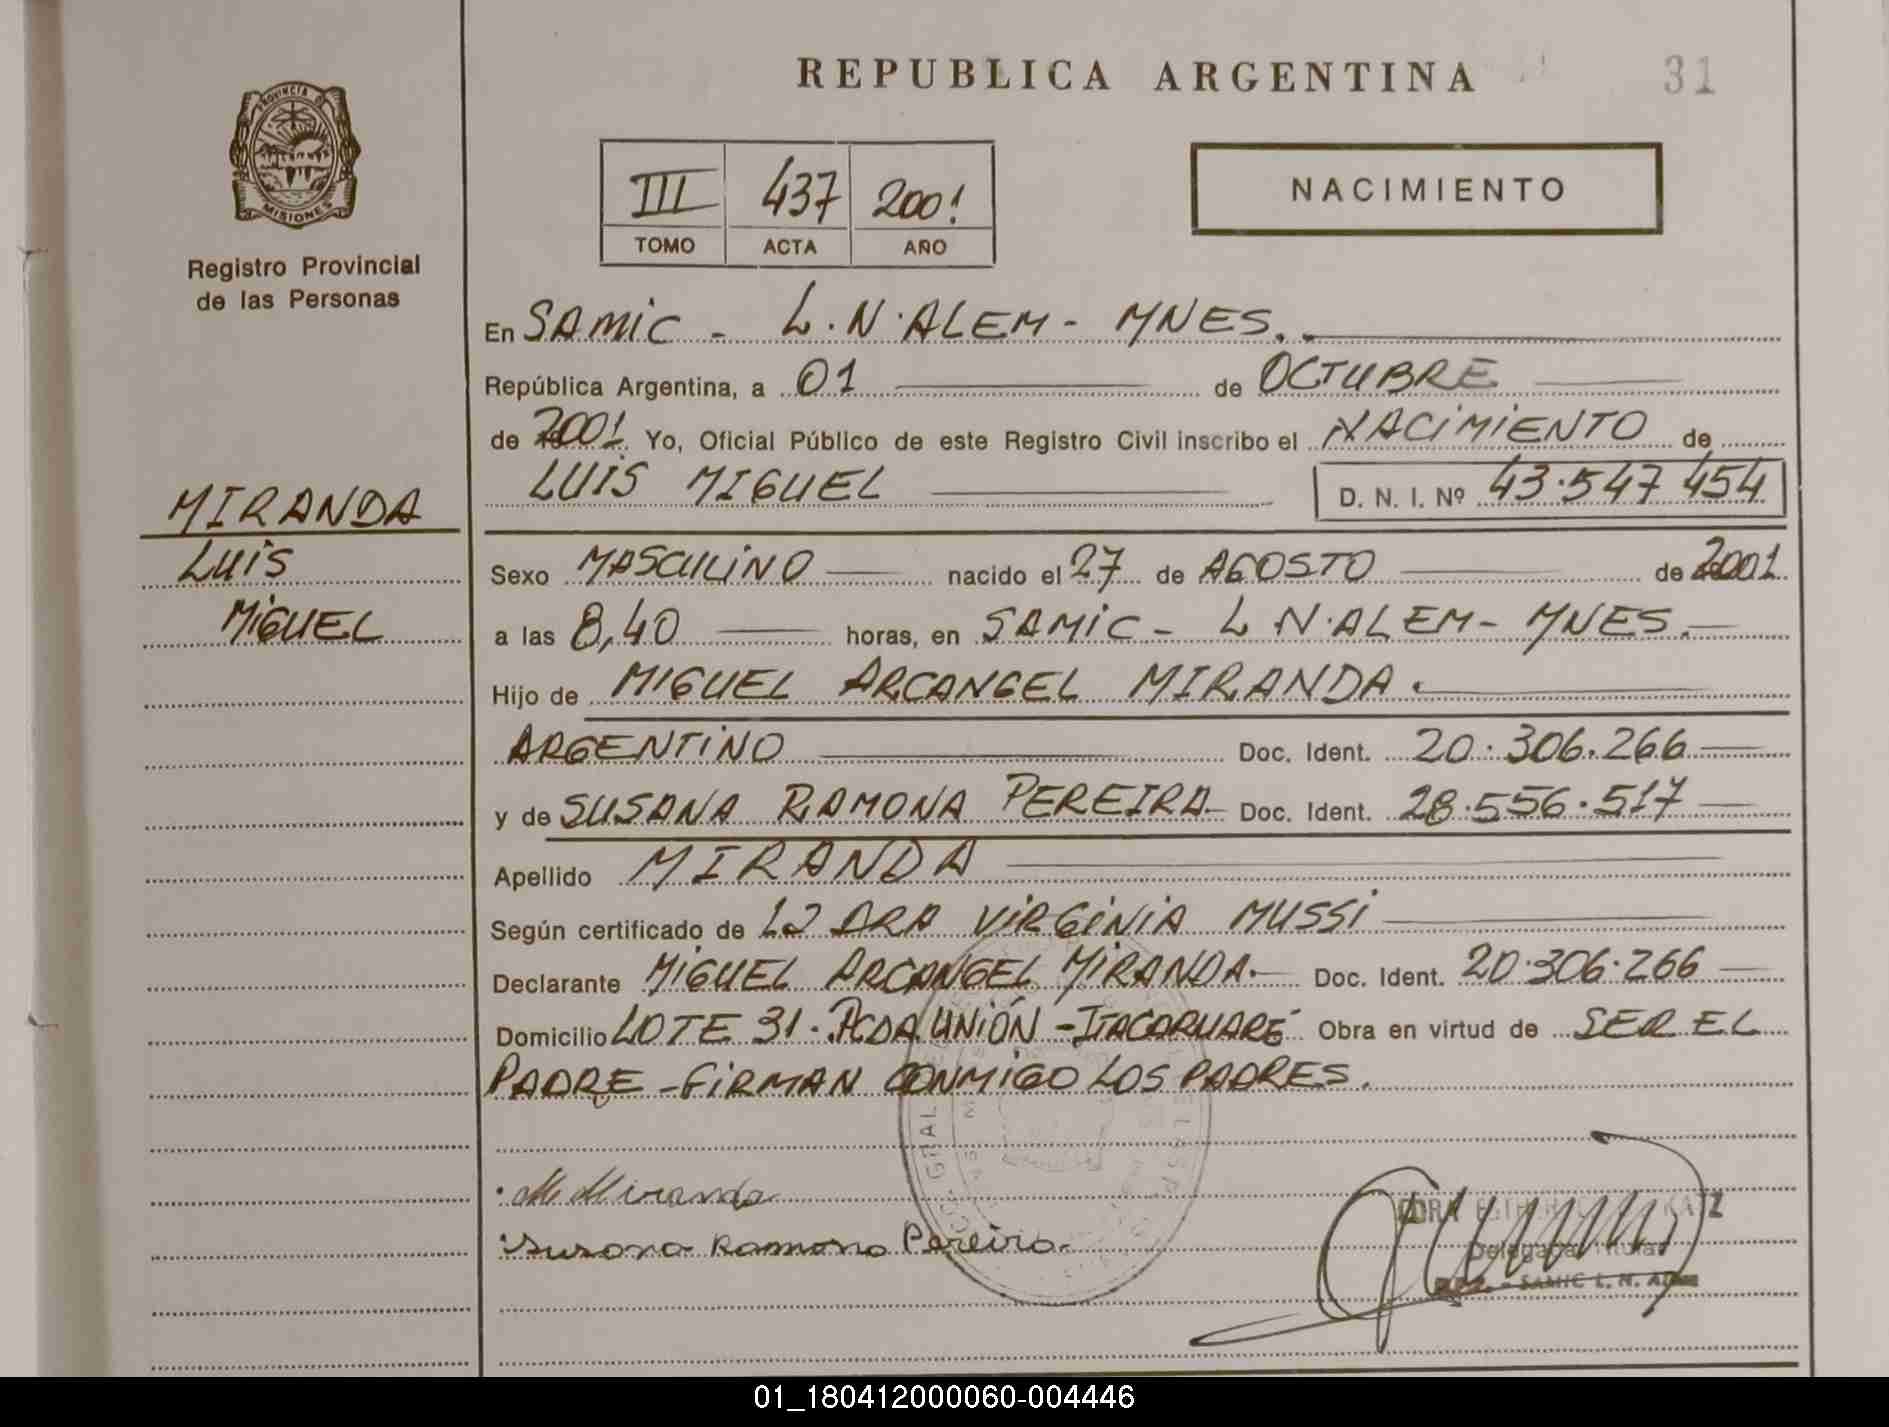 REPUBLICA ARGENTINA
31
PROVINCIA D
MISIONES
Registro Provincial
de las Personas
III 437 2001
TOMO ACTA AÑO
NACIMIENTO
En SAMIC - L.N.ALEM - MNES.
República Argentina, a 01 de OCTUBRE
de 2001 Yo, Oficial Público de este Registro Civil inscribo el NACIMIENTO de
LUIS MIGUEL D. N. I. Nº 43.547 454
MIRANDA
LUIS
MIGUEL
Sexo MASCULINO nacido el 27 de AGOSTO de 2001
a las 8,40 horas, en SAMIC - L N.ALEM - MNES.
Hijo de MIGUEL ARCANGEL MIRANDA.
ARGENTINO Doc. Ident. 20.306.266
y de SUSANA RAMONA PEREIRA Doc. Ident. 28.556.517
Apellido MIRANDA
Según certificado de DRA VIRGINIA MUSSI
Declarante MIGUEL ARCANGEL MIRANDA. Doc. Ident. 20.306.266
Domicilio LOTE 31. PCDA UNIÓN - ITACARUARE Obra en virtud de SER EL
PADRE - FIRMAN CONMIGO LOS PADRES.
M Miranda
Susana Ramona Pereira
Delegada Titular
SAMIC L. N. ALEM
01_180412000060-004446